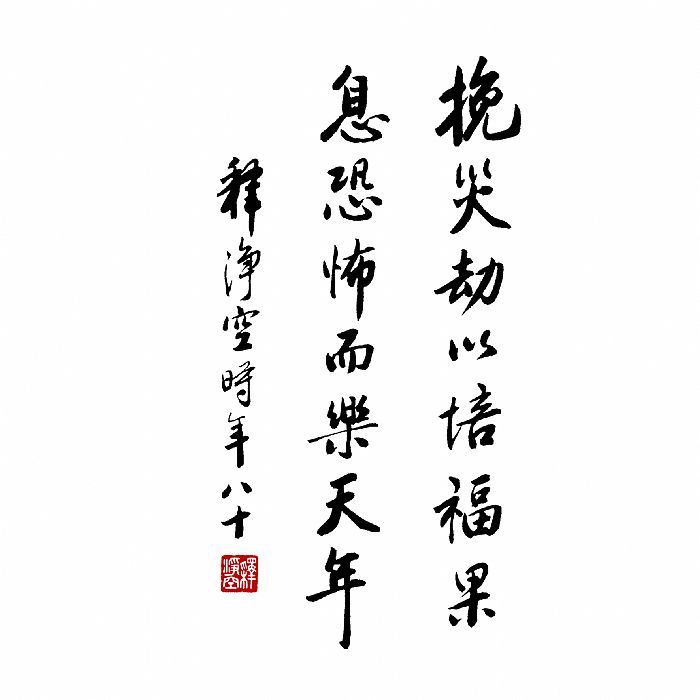 挽災劫以培福果
息恐怖而樂天年
釋淨空時年八十
釋淨空